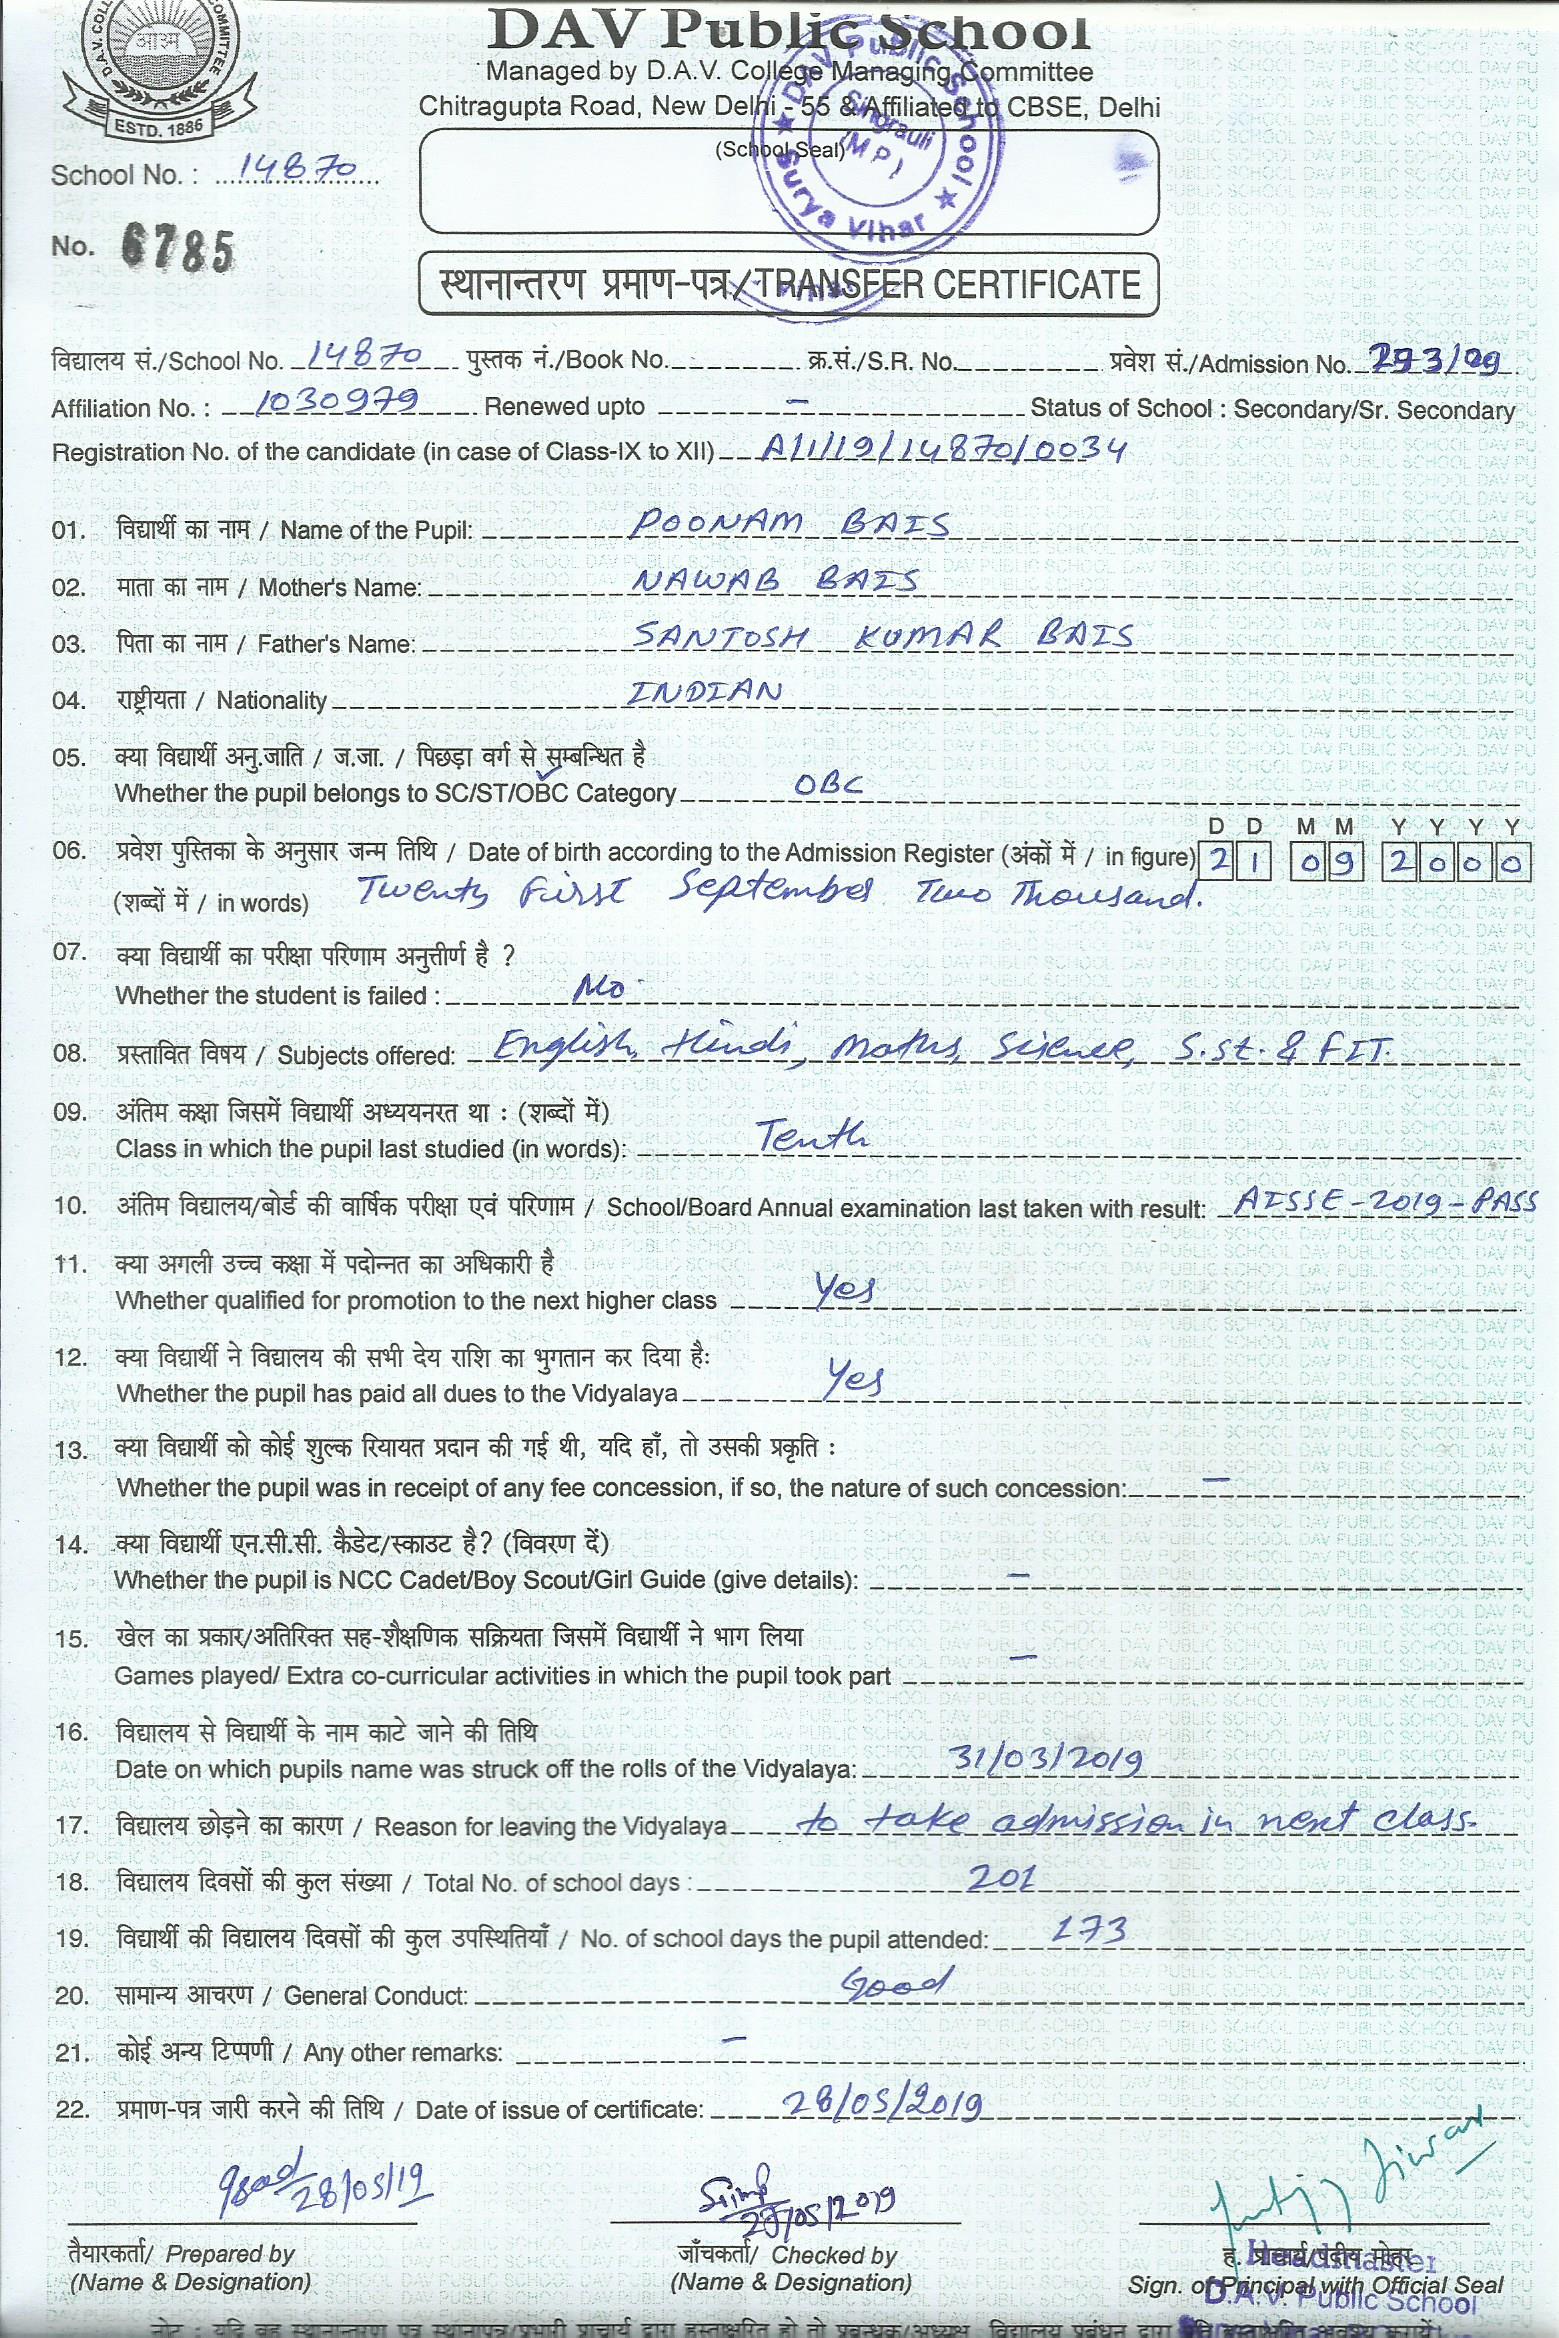 DAV Public School
Managed by D.A.V. College Managing Committee
Chitragupta Road, New Delhi - 55 & Affiliated to CBSE, Delhi
आ३म्
ESTD. 1886
(School Seal)
DAV Public School
Surya Vihar
Singrauli
(M P)
School No. : 14870
No. 6785
स्थानान्तरण प्रमाण-पत्र/TRANSFER CERTIFICATE
विद्यालय सं./School No. 14870 पुस्तक नं./Book No. क्र.सं./S.R. No. प्रवेश सं./Admission No.
Affiliation No. : 1030979 Renewed upto – Status of School : Secondary/Sr. Secondary
Registration No. of the candidate (in case of Class-IX to XII) A/1/19/14870/0034
01. विद्यार्थी का नाम / Name of the Pupil: POONAM BAIS
02. माता का नाम / Mother's Name: NAWAB BAIS
03. पिता का नाम / Father's Name: SANTOSH KUMAR BAIS
04. राष्ट्रीयता / Nationality INDIAN
05. क्या विद्यार्थी अनु.जाति / ज.जा. / पिछड़ा वर्ग से सम्बन्धित है
Whether the pupil belongs to SC/ST/OBC Category OBC
D D M M Y Y Y Y
06. प्रवेश पुस्तिका के अनुसार जन्म तिथि / Date of birth according to the Admission Register (अंकों में / in figure) 2 1 0 9 2 0 0 0
(शब्दों में / in words) Twenty First September Two Thousand.
07. क्या विद्यार्थी का परीक्षा परिणाम अनुत्तीर्ण है ?
Whether the student is failed : No
08. प्रस्तावित विषय / Subjects offered: English, Hindi, Maths, Science, S.st. & FIT.
09. अंतिम कक्षा जिसमें विद्यार्थी अध्ययनरत था : (शब्दों में)
Class in which the pupil last studied (in words): Tenth
10. अंतिम विद्यालय/बोर्ड की वार्षिक परीक्षा एवं परिणाम / School/Board Annual examination last taken with result: AISSE-2019-PASS
11. क्या अगली उच्च कक्षा में पदोन्नत का अधिकारी है
Whether qualified for promotion to the next higher class Yes
12. क्या विद्यार्थी ने विद्यालय की सभी देय राशि का भुगतान कर दिया है:
Whether the pupil has paid all dues to the Vidyalaya Yes
13. क्या विद्यार्थी को कोई शुल्क रियायत प्रदान की गई थी, यदि हाँ, तो उसकी प्रकृति :
Whether the pupil was in receipt of any fee concession, if so, the nature of such concession: –
14. क्या विद्यार्थी एन.सी.सी. कैडेट/स्काउट है? (विवरण दें)
Whether the pupil is NCC Cadet/Boy Scout/Girl Guide (give details): –
15. खेल का प्रकार/अतिरिक्त सह-शैक्षणिक सक्रियता जिसमें विद्यार्थी ने भाग लिया
Games played/ Extra co-curricular activities in which the pupil took part –
16. विद्यालय से विद्यार्थी के नाम काटे जाने की तिथि
Date on which pupils name was struck off the rolls of the Vidyalaya: 31/03/2019
17. विद्यालय छोड़ने का कारण / Reason for leaving the Vidyalaya to take admission in next class.
18. विद्यालय दिवसों की कुल संख्या / Total No. of school days : 201
19. विद्यार्थी की विद्यालय दिवसों की कुल उपस्थितियाँ / No. of school days the pupil attended: 173
20. सामान्य आचरण / General Conduct: Good
21. कोई अन्य टिप्पणी / Any other remarks: –
22. प्रमाण-पत्र जारी करने की तिथि / Date of issue of certificate: 28/05/2019
28/05/19 28/05/2019
तैयारकर्ता/ Prepared by जाँचकर्ता/ Checked by ह. प्राचार्य/पदीय मोहर
Headmaster
(Name & Designation) (Name & Designation) Sign. of Principal with Official Seal
D.A.V. Public School
नोट : यदि वह स्थानान्तरण पत्र स्थानापन्न/प्रभारी प्राचार्य द्वारा हस्ताक्षरित हो तो प्रबन्धक/अध्यक्ष, विद्यालय प्रबंधन द्वारा